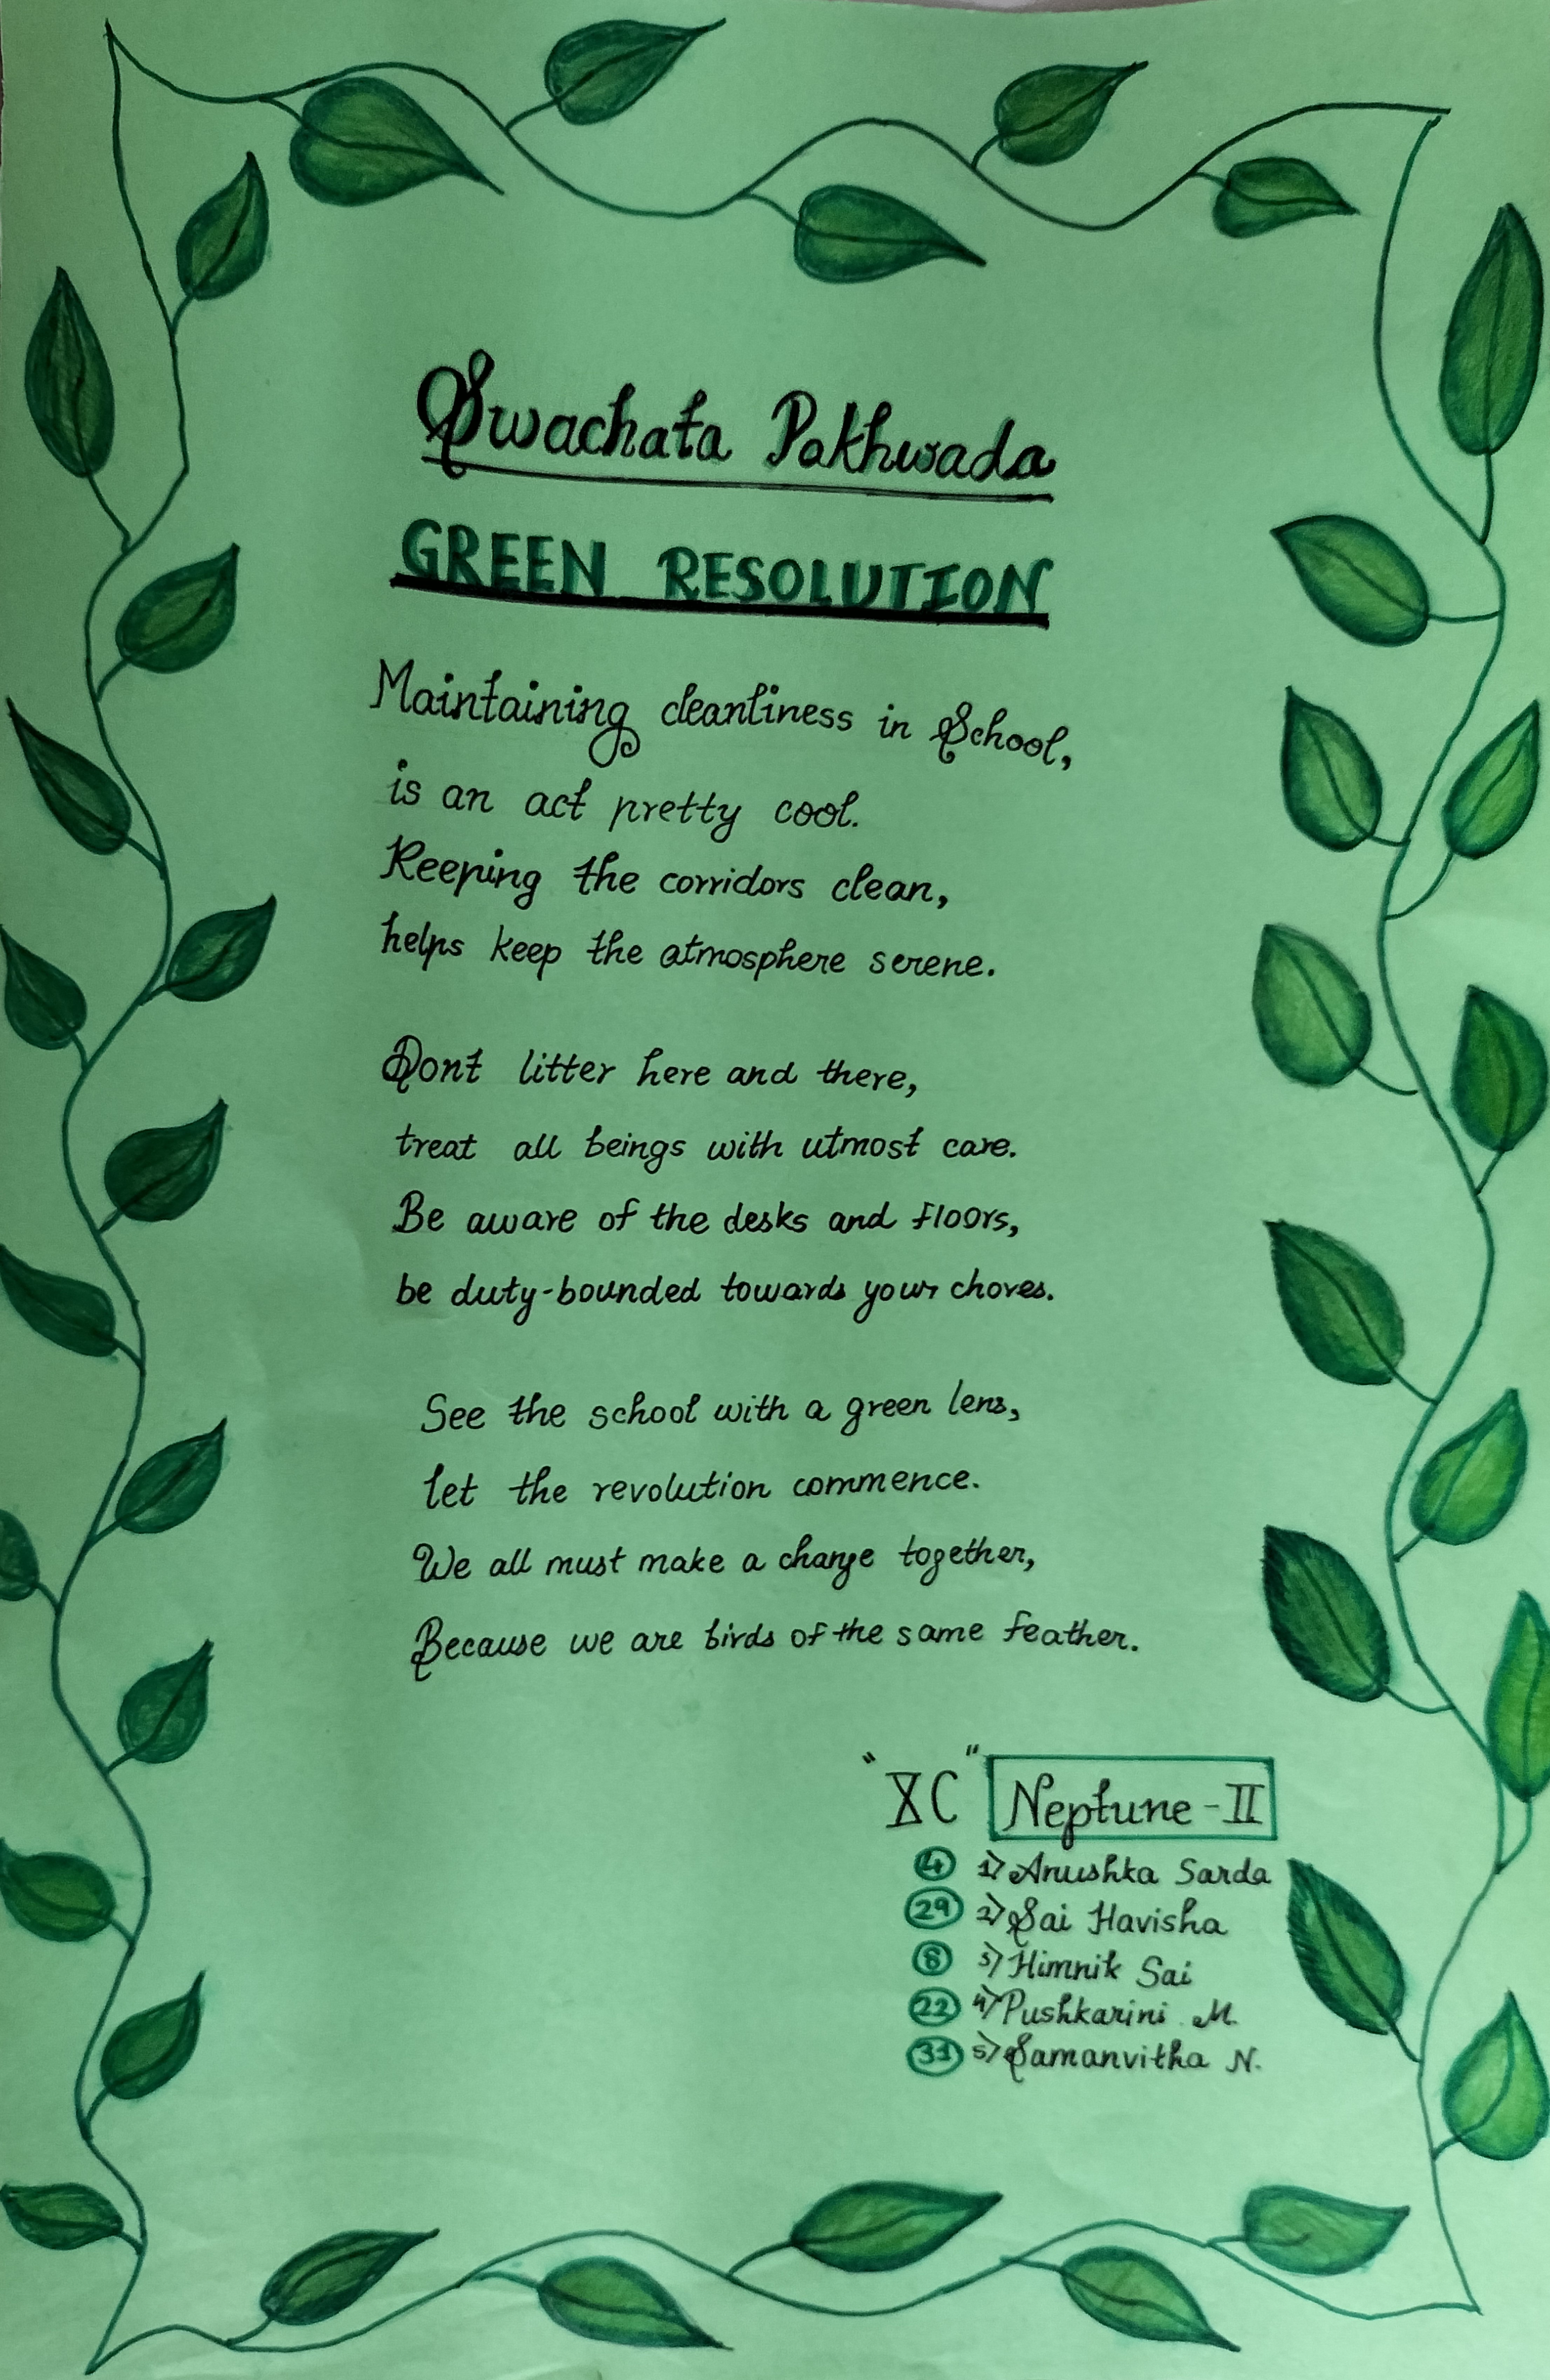 Swachata Pakhwada
GREEN RESOLUTION
Maintaining cleanliness in School,
is an act pretty cool.
Keeping the corridors clean,
helps keep the atmosphere serene.
Dont litter here and there,
treat all beings with utmost care.
Be aware of the desks and floors,
be duty-bounded towards your chores.
See the school with a green lens,
let the revolution commence.
We all must make a change together,
Because we are birds of the same feather.
"XC" Neptune-II
4 1) Anushka Sarda
29 2) Sai Havisha
8 3) Himnik Sai
22 4) Pushkarini M.
31 5) Samanvitha N.